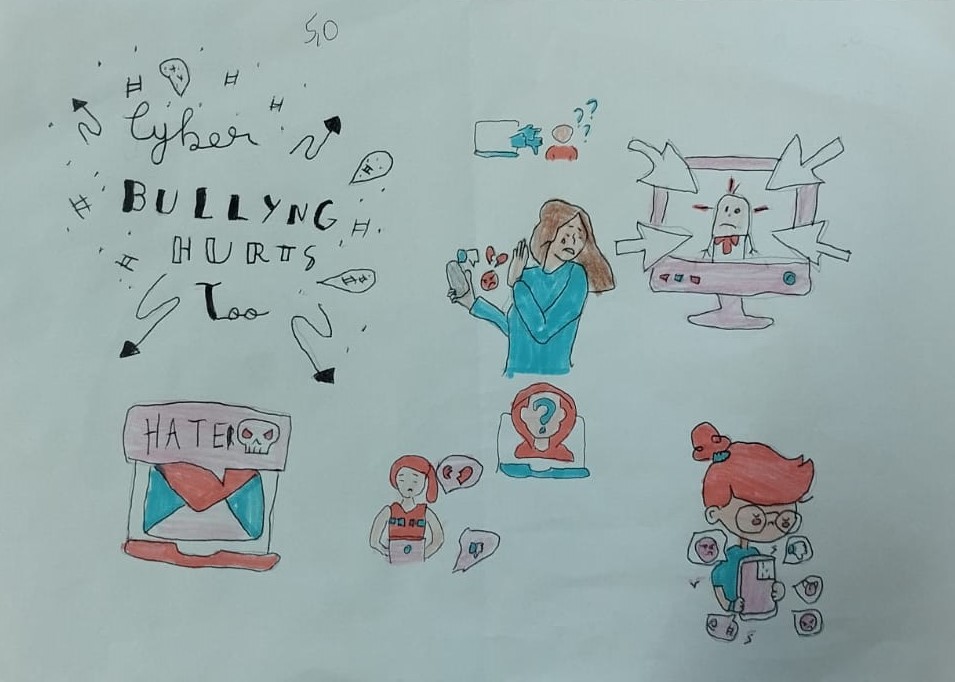 5,0
Cyber
BULLYNG
HURTS
Too
HATER